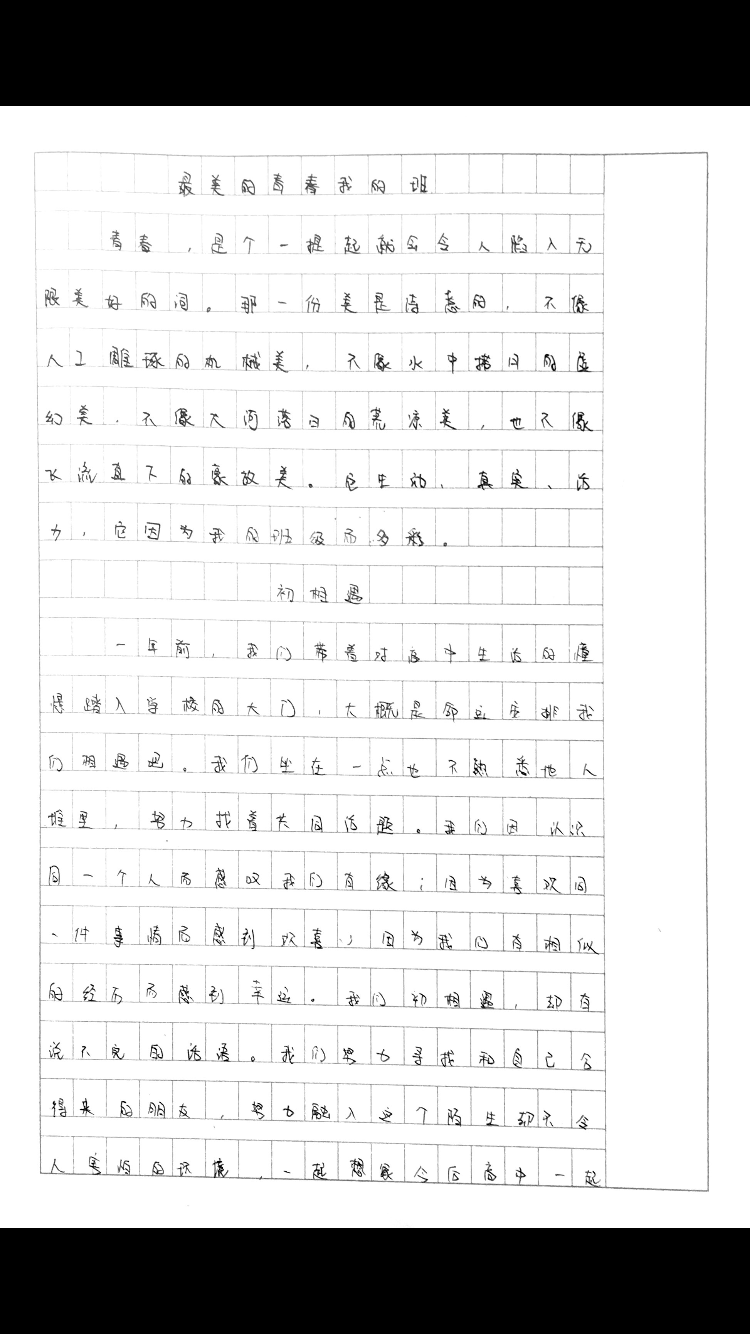 最美的青春我的班
青春，是个一提起就会令人陷入无
限美好的词。那一份美是诗意的，不像
人工雕琢的机械美，不像水中捞月的虚
幻美，不像大河落日的荒凉美，也不像
飞流直下的豪放美。它生动、真实、活
力，它因为我的班级而多彩。
初相遇
一年前，我们带着对高中生活的憧
憬踏入学校的大门，大概是命运安排我
们相遇吧。我们坐在一点也不熟悉地人
堆里，努力找着共同话题。我们因认识
同一个人而感叹我们有缘；因为喜欢同
一件事情而感到欢喜；因为我们有相似
的经历而感到幸运。我们初相遇，却有
说不完的话语。我们努力寻找和自己合
得来的朋友，努力融入这个陌生却不令
人害怕的环境，一起想象今后高中一起